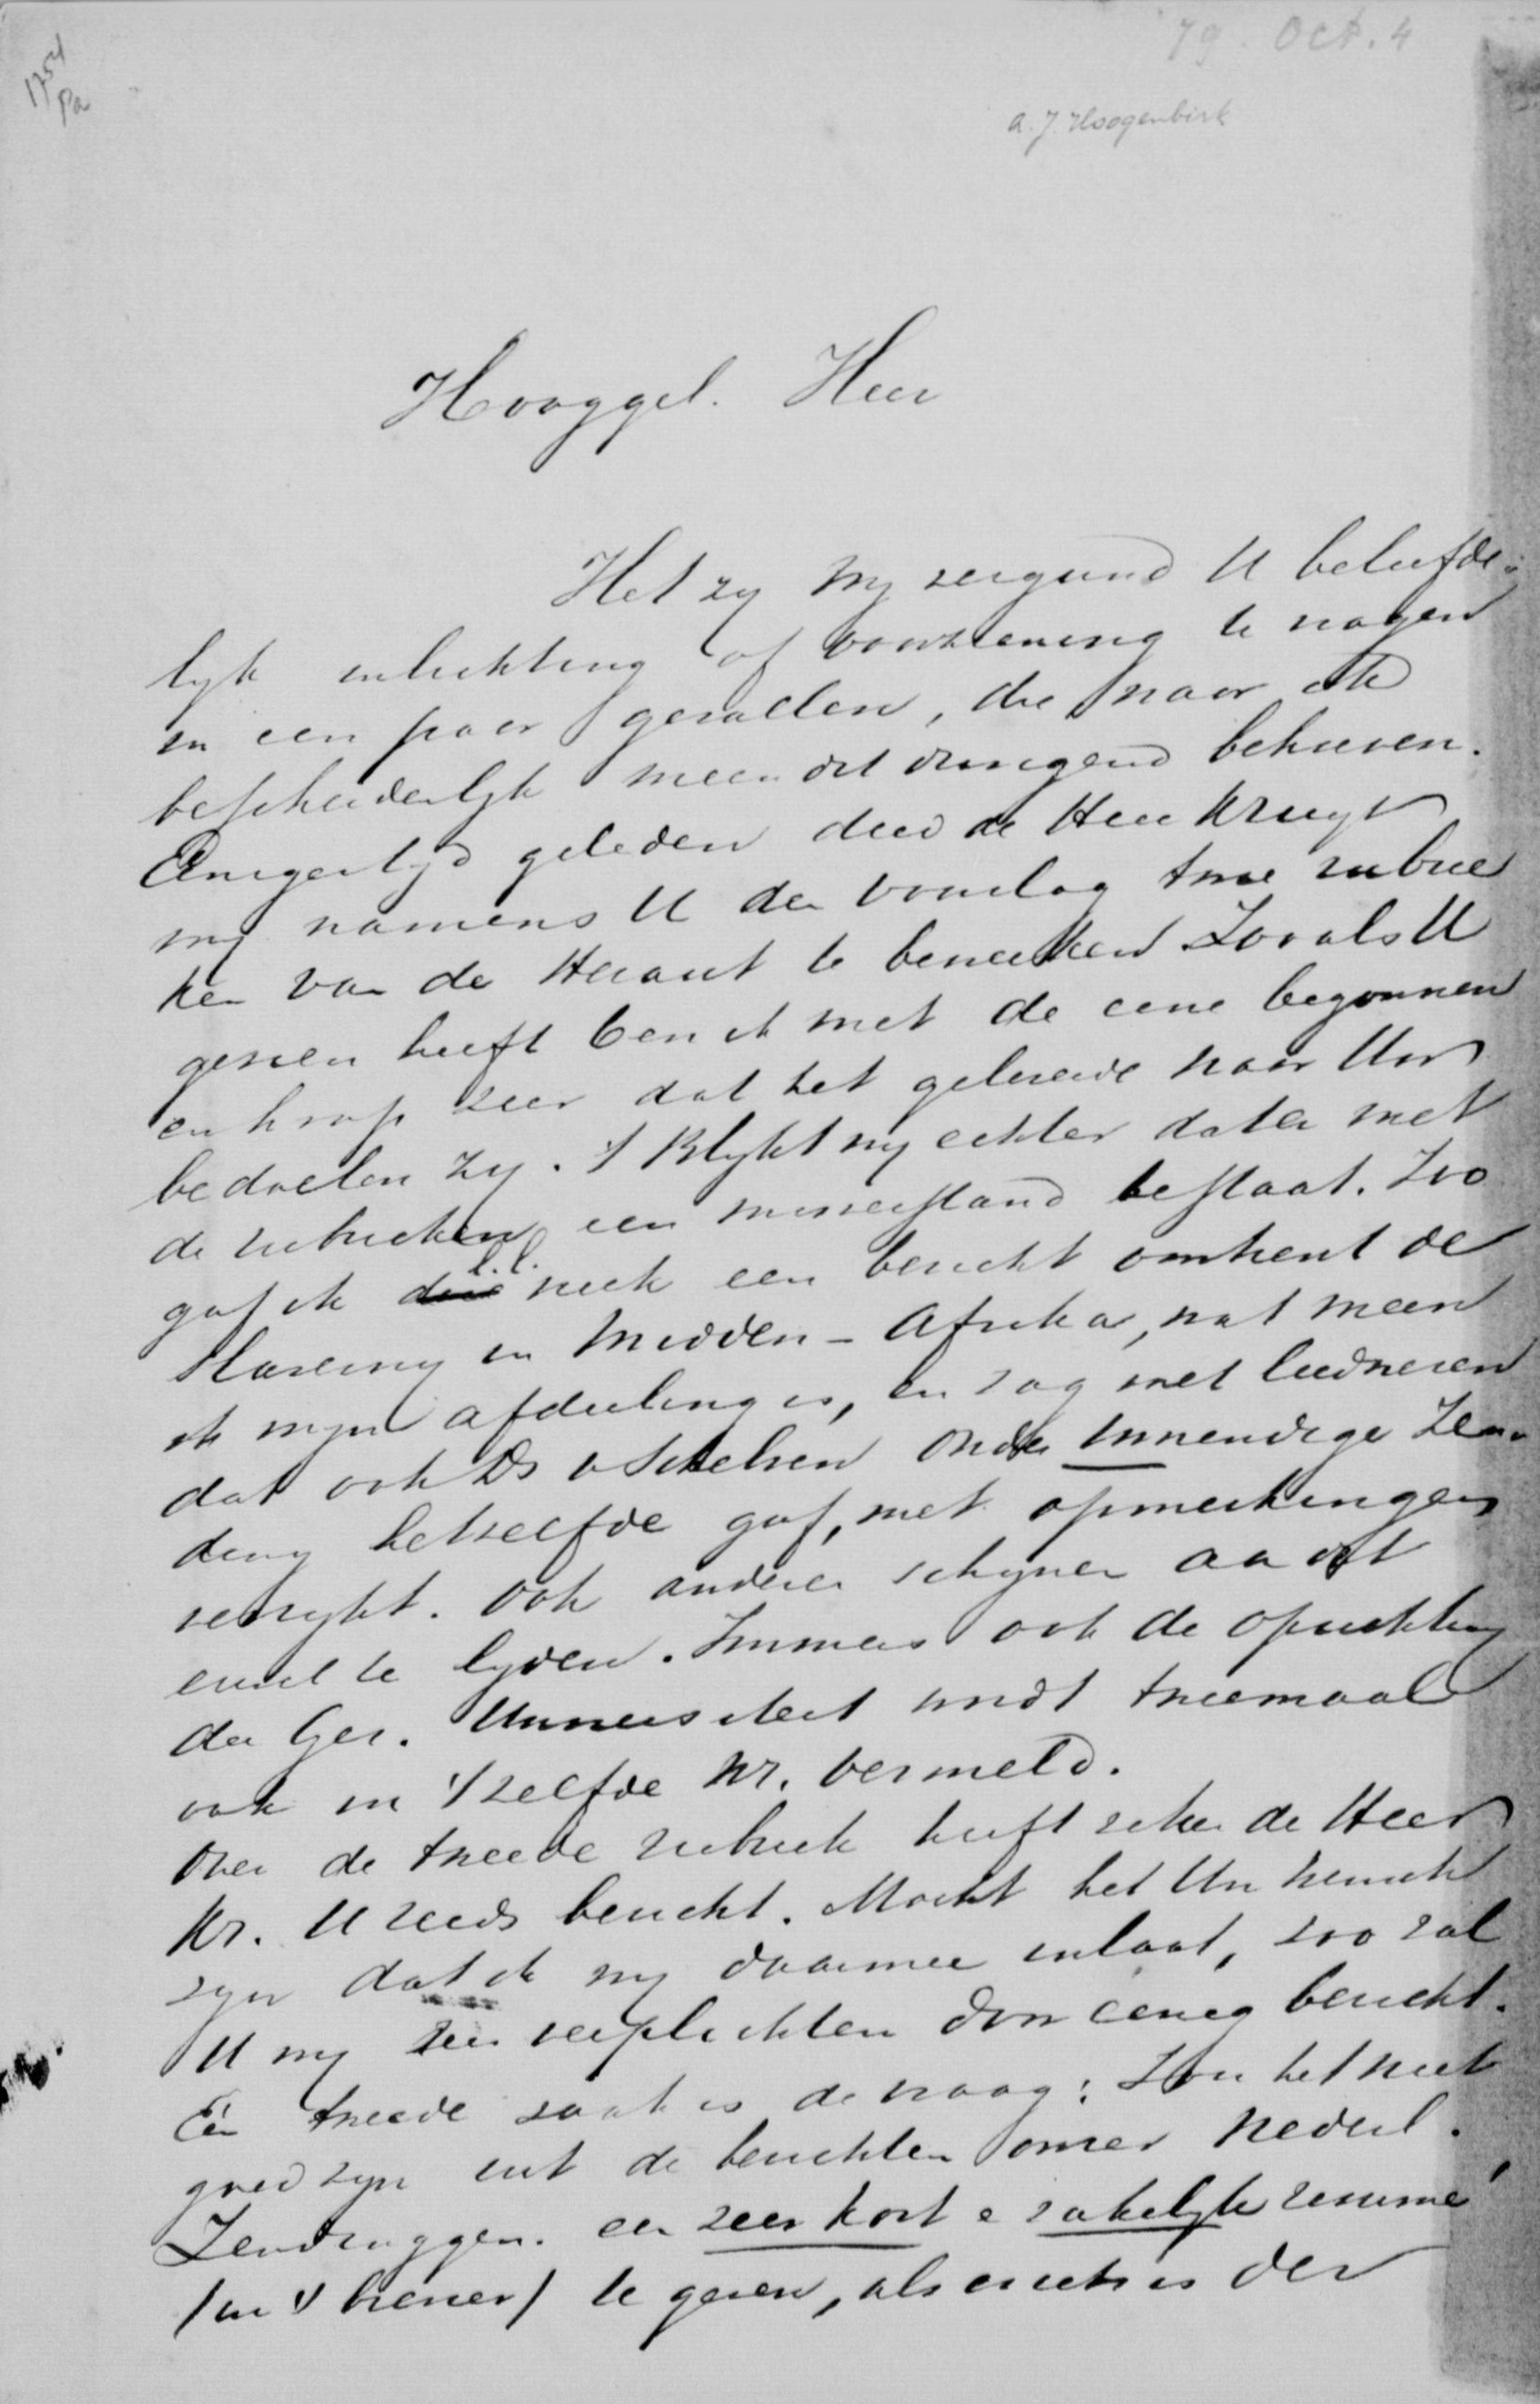 '79. Oct. 4
1754
Pa
A. J. Hoogenbirk
Hooggel. Heer
Het zy my vergund U beleefde-
lyk inlichting of voorziening te vragen
in een paar gevallen, die naar ik
bescheidenlyk meen dit dringend behoeven.
Eenigen tyd geleden deed de Heer Kruyt
my namens U den voorslag twee rubrie
ken van de Heraut te bewerken. Zooals U
gezien heeft ben ik met de eene begonnen
en hoop zeer dat het geleverde naar Uw
bedoelen zy. 't Blykt my echter dat er met
de rubrieken een misverstand bestaat. Zoo
gaf ik l.l. week een bericht omtrent de
slaverny in Midden-Afrika, wat meen
ik myn afdeeling is, en zag met leedwezen
dat ook Ds v Schelven onder Inwendige Zen-
ding hetzelfde gaf, met opmerkingen
verrykt. Ook anderen schynen aan dit
euvel te lyden. Immers ook de oprichting
der Ger. Universiteit wordt tweemaal
ook in 't zelfde Nr. vermeld.
Over de tweede rubriek heeft zeker de Heer
Kr. U reeds bericht. Mocht het Uw wensch
zyn dat ik my daarmee inlaat, zoo zal
U my zeer verplichten door eenig bericht.
Een tweede zaak is de vraag: Zou het niet
goed zyn uit de berichten onzer Nederl.
Zendinggen. een zeer kort e zakelyk resumé
/in 't brener/ te geven, als er iets is der